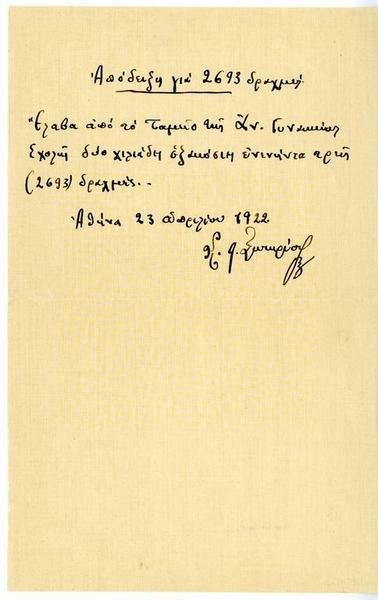 Ἀπόδειξη γιά 2693 δραχμές.
Ἔλαβα ἀπό τό Ταμεῖο τῆς Ἀν. Γυναικείας
Σχολῆς δύο χιλιάδες ἑξακόσιες ἐνενήντα τρεῖς
(2693) δραχμές..
Ἀθήνα 23 ἀπριλίου 1922